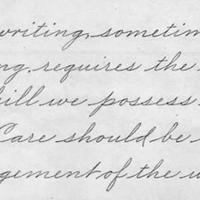 writing, sometim
ng, requires the
kill we possess
Care should be
gement of the w